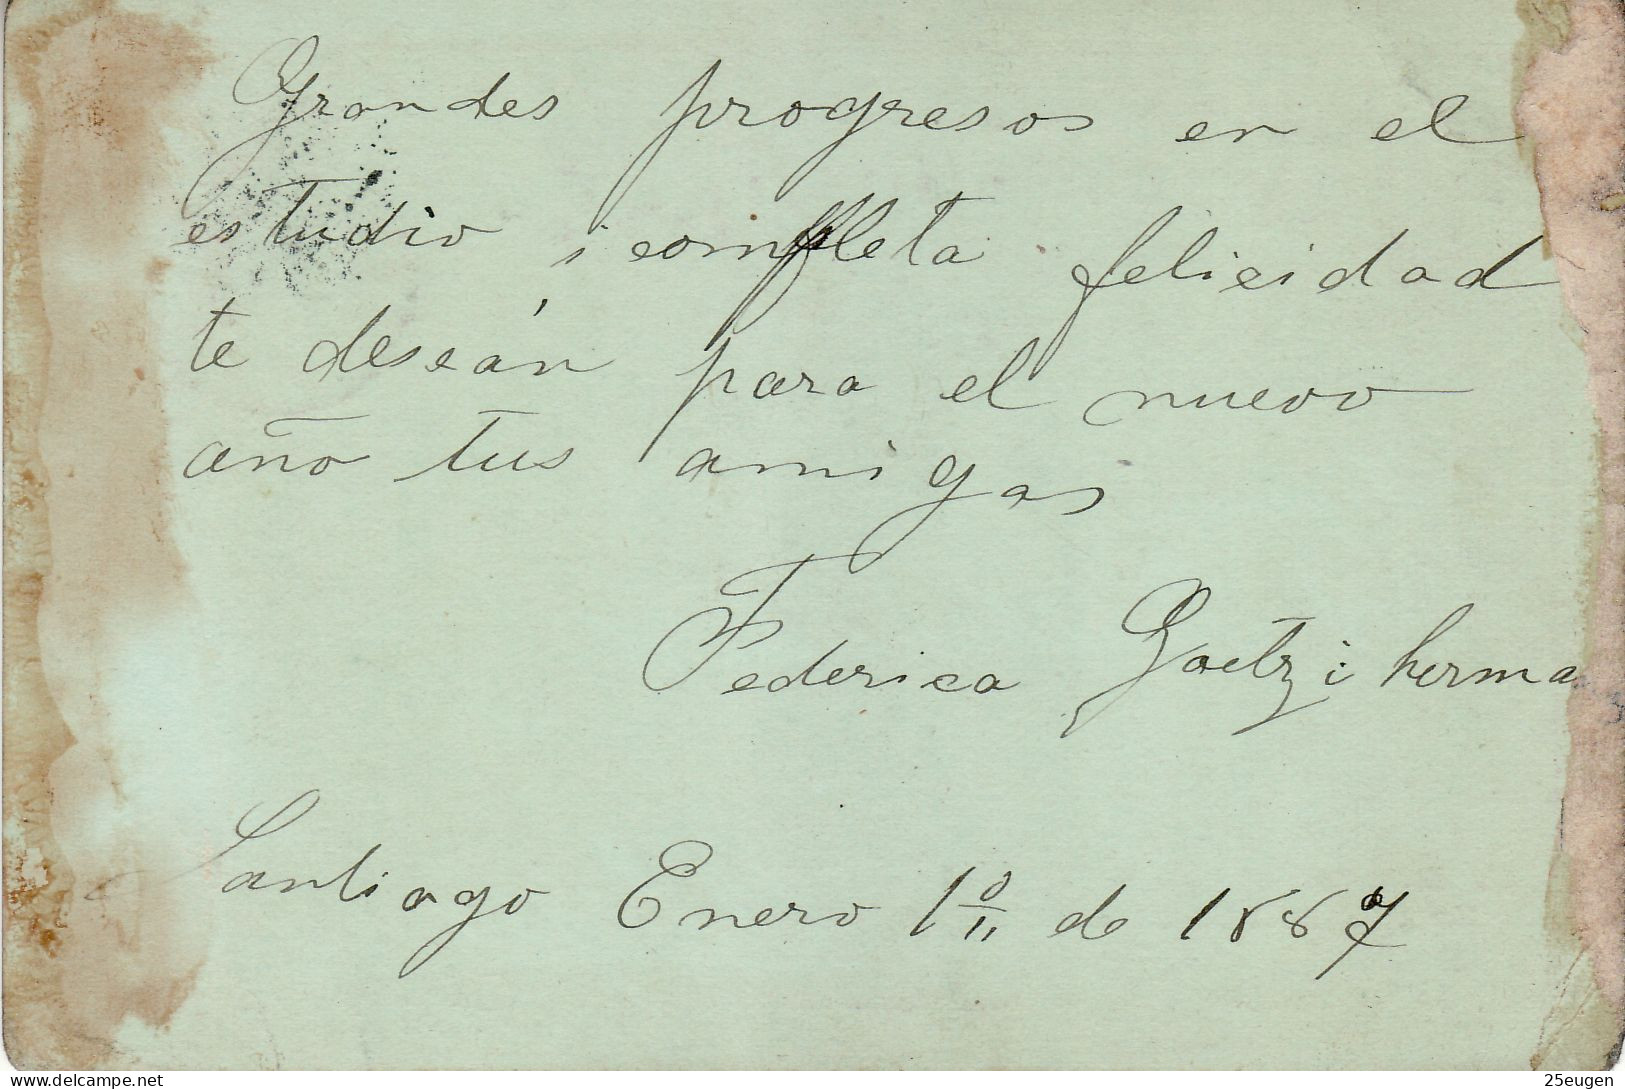 Grandes progresos en el
estudio i completa felicidad
te deseán para el nuevo
año tus amigas
Federica Goetz i herma
Santiago Enero 1º de 1887
www.delcampe.net
25eugen